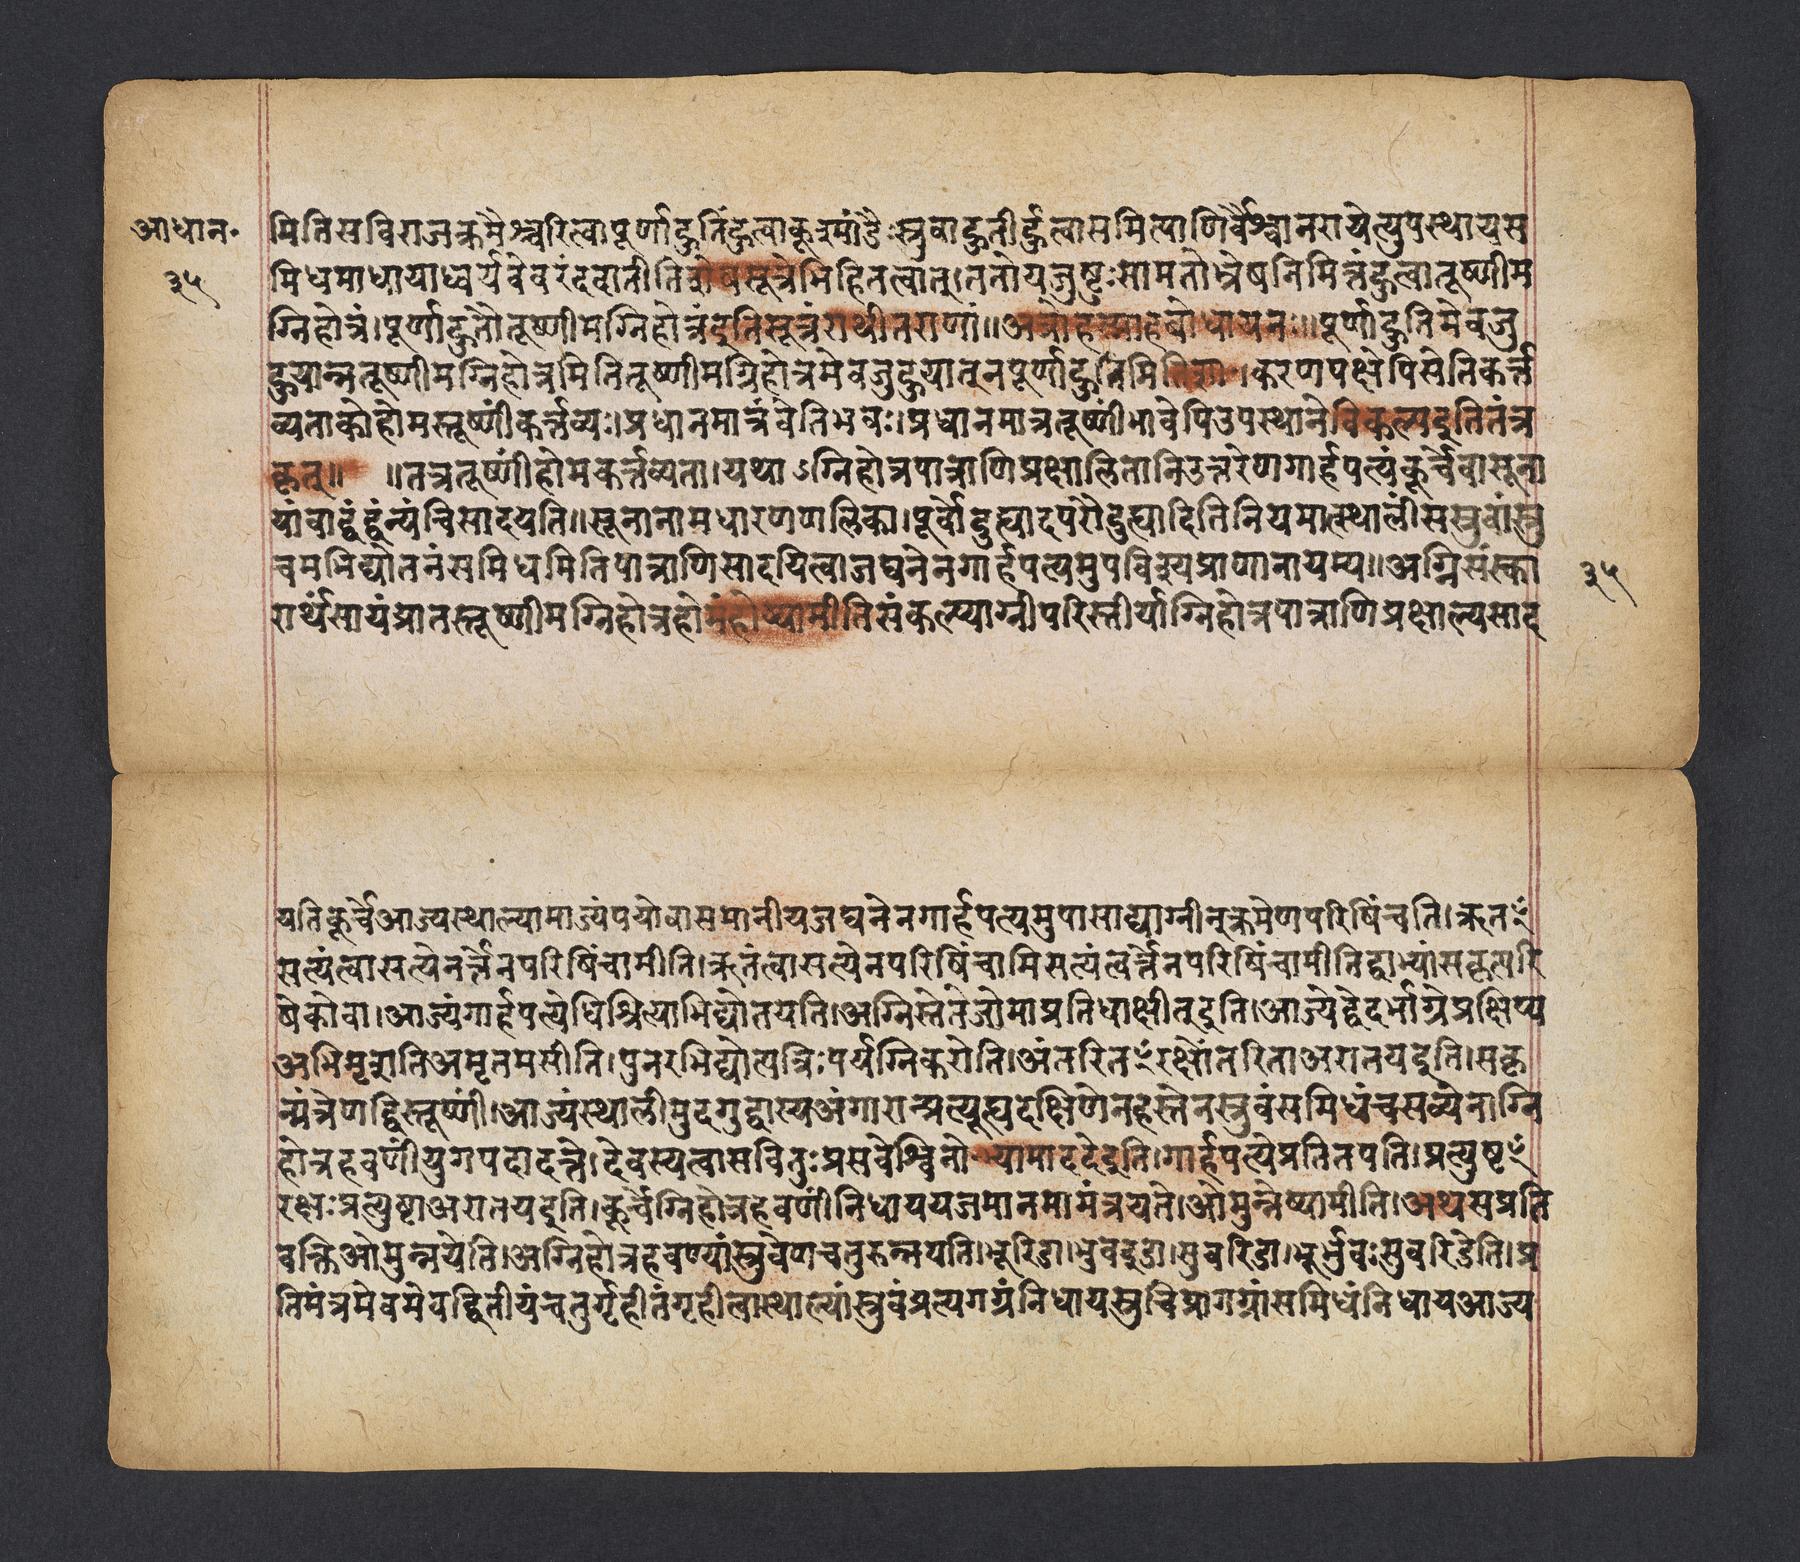 आधान॰
३५
मितिसविराजक्रमैश्चरित्वापूर्णाहुतिंहुत्वाकूश्मांडैःस्रुवाहुतीर्हुत्वासमित्पाणिर्वैश्वानरायेत्युपस्थायस
मिधमाधायाध्वर्यवेवरंददातीतिशेषसूत्रेभिहितत्वात्।ततोयजुष्टःसामतोभ्रेषनिमित्तंहुत्वातूष्णीम
ग्निहोत्रं।पूर्णाहुतौतूष्णीमग्निहोत्रंइतिसूत्रंराथीतराणां॥अत्रोहस्माहबोधायनः॥पूर्णाहुतिमेवजु
हुयान्नतूष्णीमग्निहोत्रमितितूष्णीमग्निहोत्रमेवजुहुयात्नपूर्णाहुतिमिति।करणपक्षेपिसेतिकर्त्त
व्यताकोहोमस्तूष्णींकर्त्तव्यः।प्रधानमात्रंवेतिभवः।प्रधानमात्रतूष्णींभावेपिउपस्थानेविकल्पइतितंत्र
कृत्॥ ॥तत्रतूष्णींहोमकर्त्तव्यता।यथाऽग्निहोत्रपात्राणिप्रक्षालितानिउत्तरेणगार्हपत्यंकूर्चेवासूना
यांवाद्वंद्वंन्यंचिसादयति॥सूनानामधारणणलिका।पूर्वोदुह्यादपरोदुह्यादितिनियमात्स्थालींसस्रुवांस्रु
चमभिद्योतनंसमिधमितिपात्राणिसादयित्वाजघनेनगार्हपत्यमुपविश्यप्राणानायम्य॥अग्निसंस्का
३५
रार्थंसायंप्रातस्तूष्णीमग्निहोत्रहोमंहोष्यामीतिसंकल्प्याग्नीपरिस्तीर्याग्निहोत्रपात्राणिप्रक्षाल्यसाद
यतिकूर्चेआज्यस्थाल्यामाज्यंपयोवासमानीयजघनेनगार्हपत्यमुपासाद्याग्नीन्क्रमेणपरिषिंचति।ऋतꣳ
सत्यंत्वासत्येनर्त्तेनपरिषिंचामीति।ऋतंत्वासत्येनपरिषिंचामिसत्यंत्वर्त्तेनपरिषिंचामीतिद्वाभ्यांसकृत्परि
षेकोवा।आज्यंगार्हपत्येधिश्रित्याभिद्योतयति।अग्निस्तेतेजोमाप्रतिधाक्षीत्इति।आज्येद्वेदर्भाग्रेप्रक्षिप्य
अभिमृशतिअमृतमसीति।पुनरभिद्योत्यत्रिःपर्यग्निकरोति।अंतरितꣳरक्षोंतरिताअरातयइति।सकृ
न्मंत्रेणद्विस्तूष्णीं।आज्यंस्थालीमुदगुद्वास्यअंगारान्प्रत्यूह्यदक्षिणेनहस्तेनस्रुवंसमिधंचसव्येनाग्नि
होत्रहवणींयुगपदादत्ते।देवस्यत्वासवितुःप्रसवेश्विनोभ्यामाददेइति।गार्हपत्येप्रतितपति।प्रत्युष्टꣳ
रक्षःप्रत्युष्टाअरातयइति।कूर्चेग्निहोत्रहवणींनिधाययजमानमामंत्रयते।ओमुन्नेष्यामीति।अथसप्रति
वक्तिओमुन्नयेति।अग्निहोत्रहवण्यांस्रुवेणचतुरुन्नयति।भूरिडा।भुवइडा।सुवरिडा।भूर्भुवःसुवरिडेति।प्र
तिमंत्रमेवमेवद्वितीयंचतुर्गृहीतंगृहीत्वास्थाल्यांस्रुवंप्रत्यगग्रंनिधायस्रुचिप्रागग्रांसमिधंनिधायआज्य